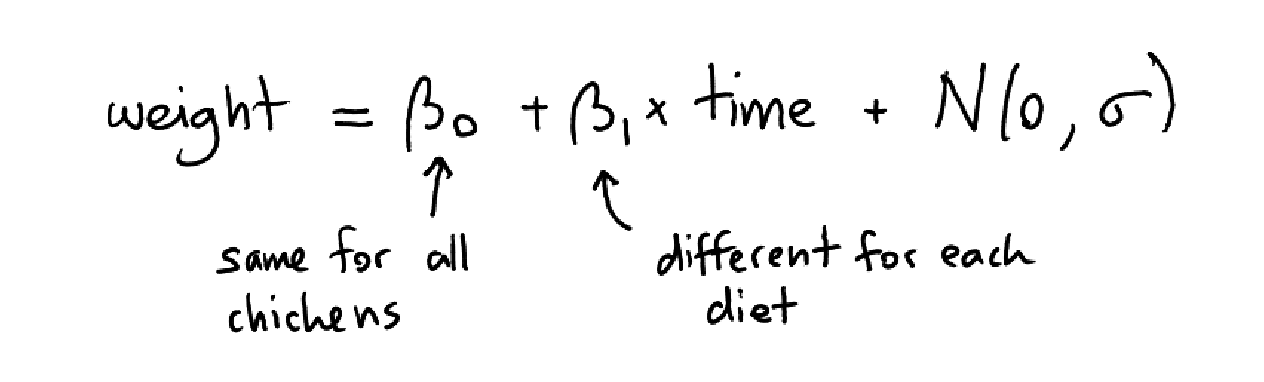 weight = β₀ + β₁ × time + N(0, σ)
same for all
chickens
different for each
diet